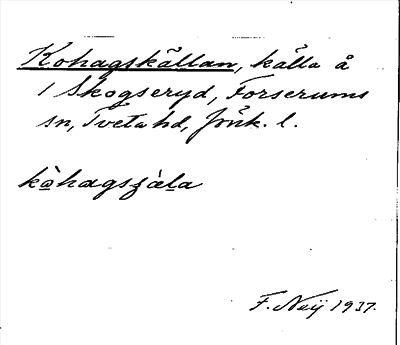 Kohagskällan, källa å
1 Skogseryd, Forserums
sn, Tveta hd, Jönk. l.
kòhagsʒàla
F. Neij 1937.